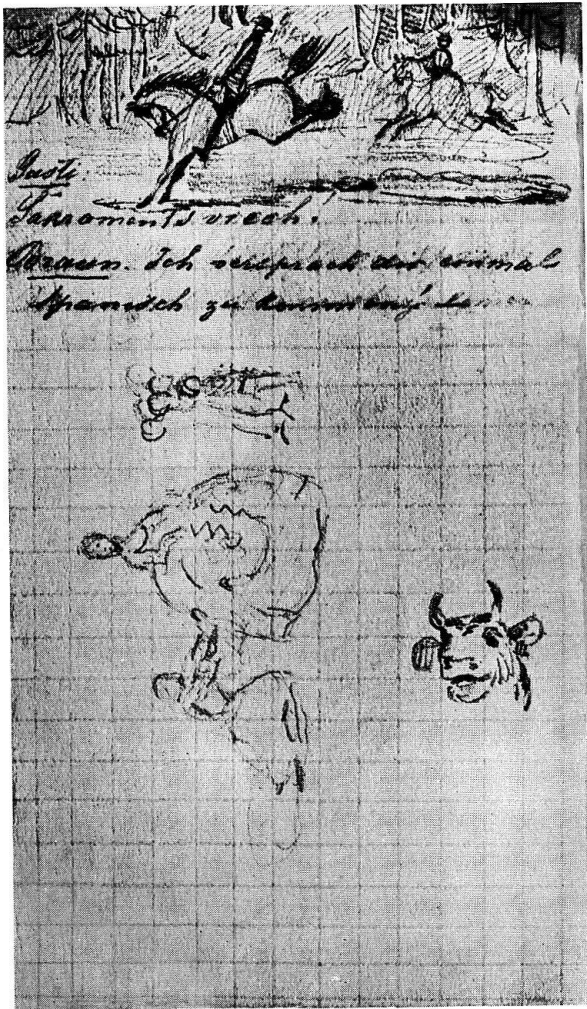 Gusti.
Sakraments vrech!
Ich versprach dir einmal
Spanisch zu kommen,